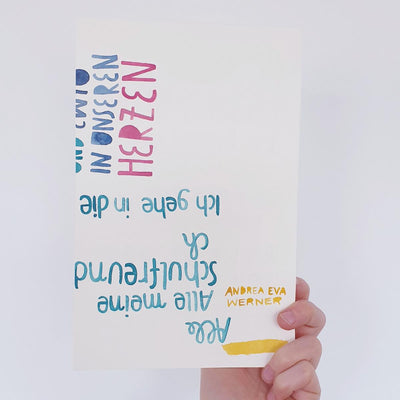 UND EWIG
IN UNSEREN
HERZEN
Alle
Alle meine
Schulfreund
ch
Ich gehe in die
ANDREA EVA
WERNER